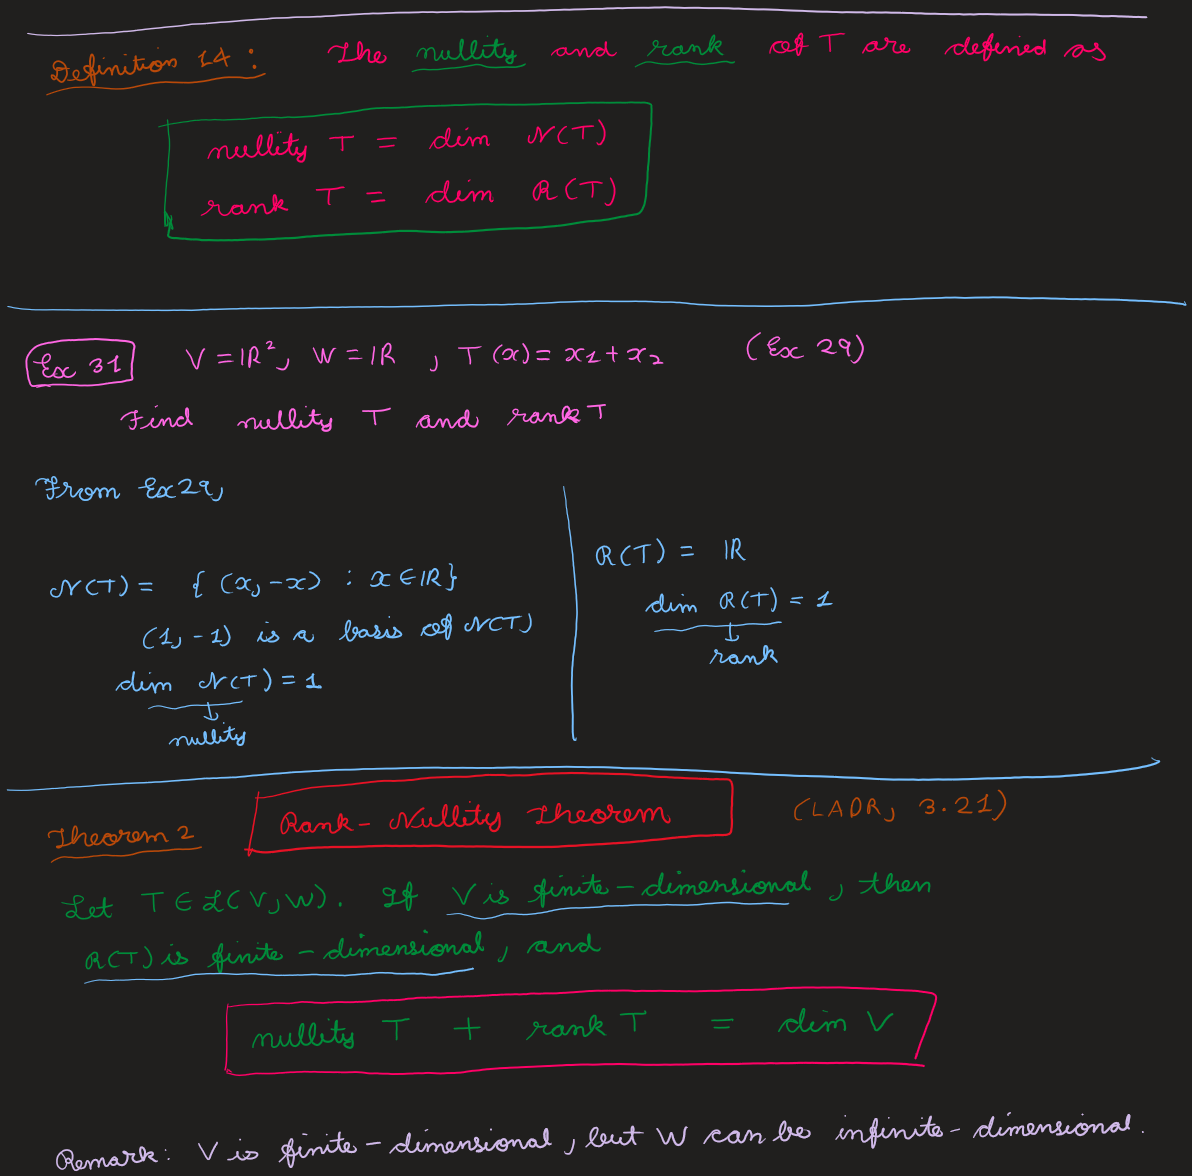 Definition 14 : The nullity and rank of T are defined as
nullity T = dim N(T)
rank T = dim R(T)
Ex 31 V = ℝ², W = ℝ , T(x) = x₁ + x₂ (Ex 29)
Find nullity T and rank T
From Ex 29,
N(T) = { (x, -x) : x ∈ ℝ}
(1, -1) is a basis of N(T)
dim N(T) = 1
↓
nullity
R(T) = ℝ
dim R(T) = 1
↓
rank
Theorem 2 Rank - Nullity Theorem (LADR, 3.21)
Let T ∈ ℒ(V, W). If V is finite - dimensional , then
R(T) is finite - dimensional , and
nullity T + rank T = dim V
Remark: V is finite - dimensional , but W can be infinite - dimensional.